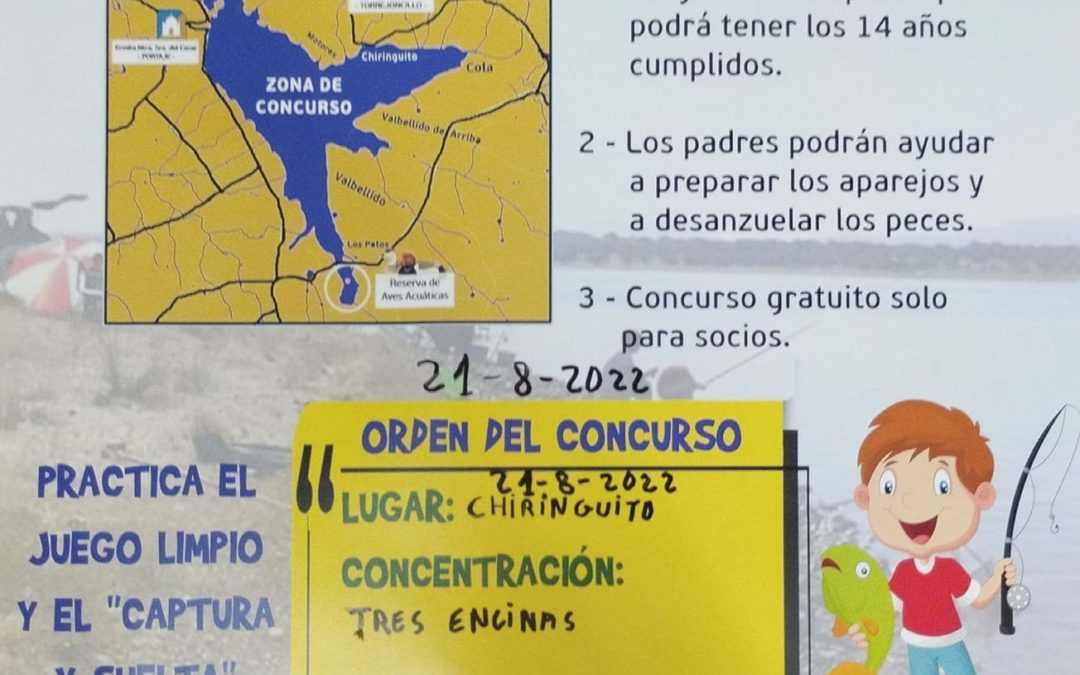 TORREJONCILLO
Ermita Ntra. Sra. del Casar
- PORTAJE -
Motores
Chiringuito
Cola
ZONA DE
CONCURSO
Valbellido de Arriba
Valbellido
Los Patos
Reserva de
Aves Acuáticas
podrá tener los 14 años
cumplidos.
2 - Los padres podrán ayudar
a preparar los aparejos y
a desanzuelar los peces.
3 - Concurso gratuito solo
para socios.
21-8-2022
ORDEN DEL CONCURSO
21-8-2022
LUGAR: CHIRINGUITO
CONCENTRACIÓN:
TRES ENCINAS
PRACTICA EL
JUEGO LIMPIO
Y EL "CAPTURA
Y SUELTA"